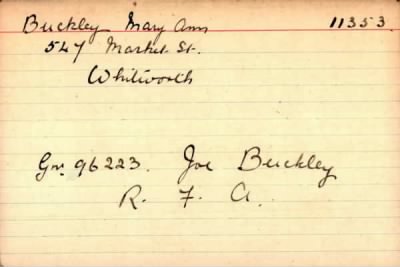 Buckley Mary Ann 11353.
547 Market St.
Whitworth
Gnr 96223. Joe Buckley
R. F. A.